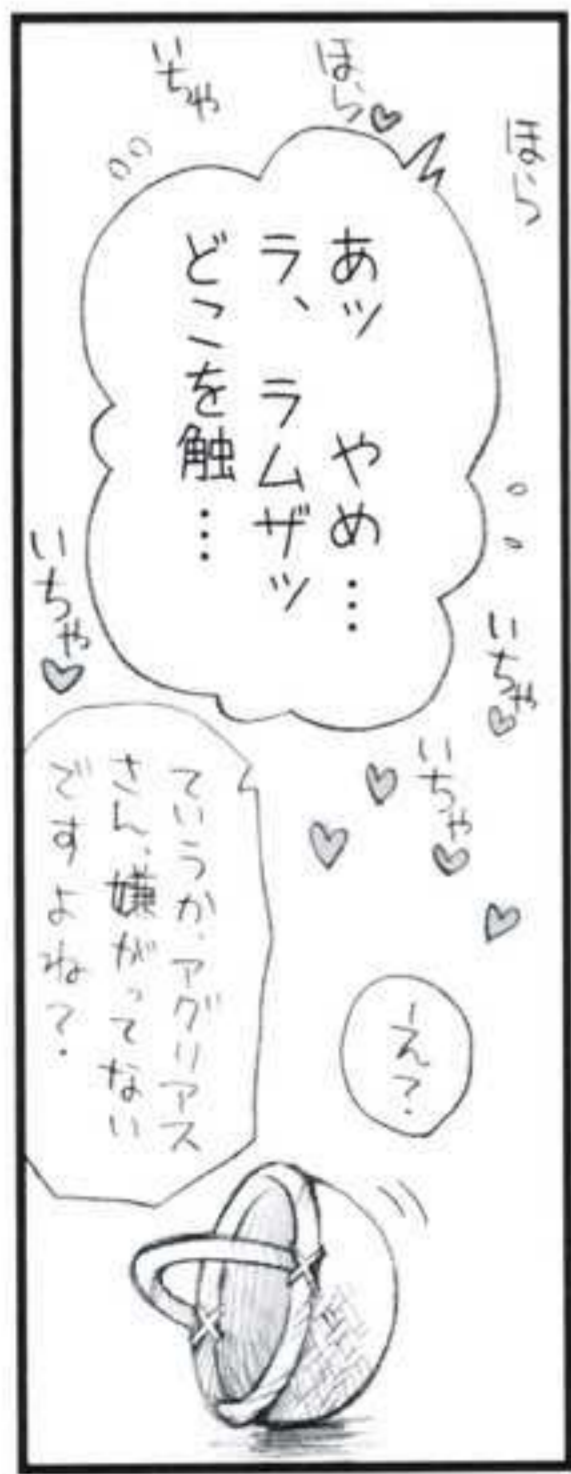 ほら
ほら♥
いちゃ
あッ やめ…
ラ、ラムザッ
どこを触…
いちゃ♥
いちゃ♥
いちゃ♥
えー？
ていうか、アグリアス
さん、嫌がってない
ですよね？